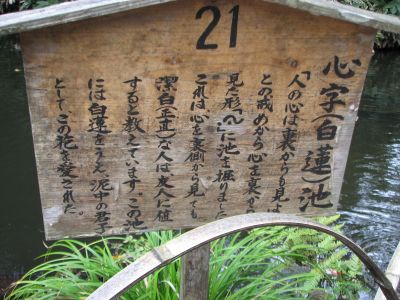 21
心字(白蓮)池
「人の心は裏からも見よ」
との戒めから心を裏から
見た形「」に池を掘りました。
これは心を裏側から見ても
潔白(正直)な人は友人に値
すると教えています。この池
には白蓮をうえ、泥中の君子
として、この花を愛された。